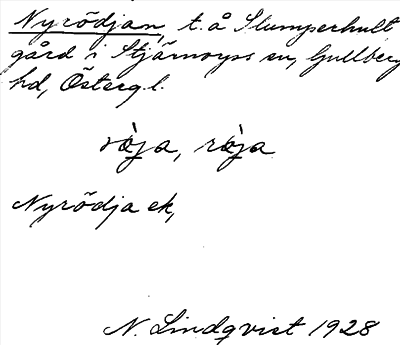 Nyrödjan, t. å Slumperhult
gård i Stjärnorps sn, Gullberg
hd, Österg.l.
röja, röja
Nyrödja ek,
N. Lindqvist 1928